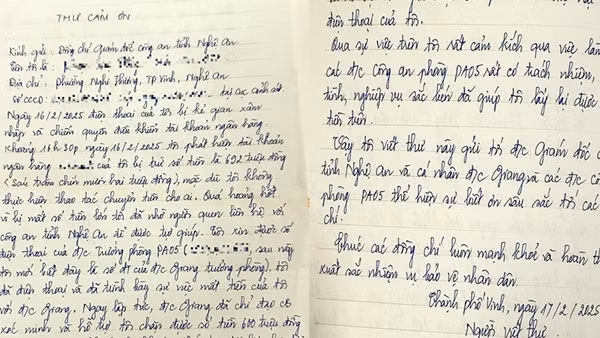 THƯ CẢM ƠN
Kính gửi: Đồng chí Giám đốc công an tỉnh Nghệ An
Tên tôi là:
Địa chỉ: Phường Nghi Thủy, TP Vinh, Nghệ An
Số CCCD: tại cục cảnh sát
Ngày 16/2/2025 điện thoại của tôi bị kẻ gian xâm
nhập và chiếm quyền điều khiển tài khoản ngân hàng.
Khoảng 16h30p ngày 16/2/2025 tôi phát hiện tài khoản
ngân hàng của tôi bị trừ số tiền là 692 triệu đồng
(sáu trăm chín mươi hai triệu đồng), mặc dù tôi không
thực hiện thao tác chuyển tiền cho ai. Quá hoảng hốt
vì bị mất số tiền lớn tôi đã nhờ người quen liên hệ với
công an tỉnh Nghệ An để được trợ giúp. Tôi xin được số
điện thoại của đ/c Trưởng phòng PA05 ( sau này
tôi mới biết đây là số đt của đ/c Giang trưởng phòng). Tôi
đã điện thoại và đã trình bày sự việc mất tiền của tôi
với đ/c Giang. Ngay lập tức, đ/c Giang đã chỉ đạo cb
xác minh và hỗ trợ tôi chặn được số tiền 600 triệu đồng
điện thoại của tôi.
Qua sự việc trên tôi rất cảm kích qua việc làm
các đ/c Công an phòng PA05 rất có trách nhiệm,
tình, nghiệp vụ sắc bén đã giúp tôi lấy lại được
tiền trên.
Vậy tôi viết thư này gửi tới đ/c Giám đốc c
tỉnh Nghệ An và cá nhân đ/c Giang và các đ/c cô
phòng PA05 thể hiện sự biết ơn sâu sắc tới các
chí.
Chúc các đồng chí luôn mạnh khoẻ và hoàn th
xuất sắc nhiệm vụ bảo vệ nhân dân.
Thành phố Vinh, ngày 17/2/2025
Người viết thư